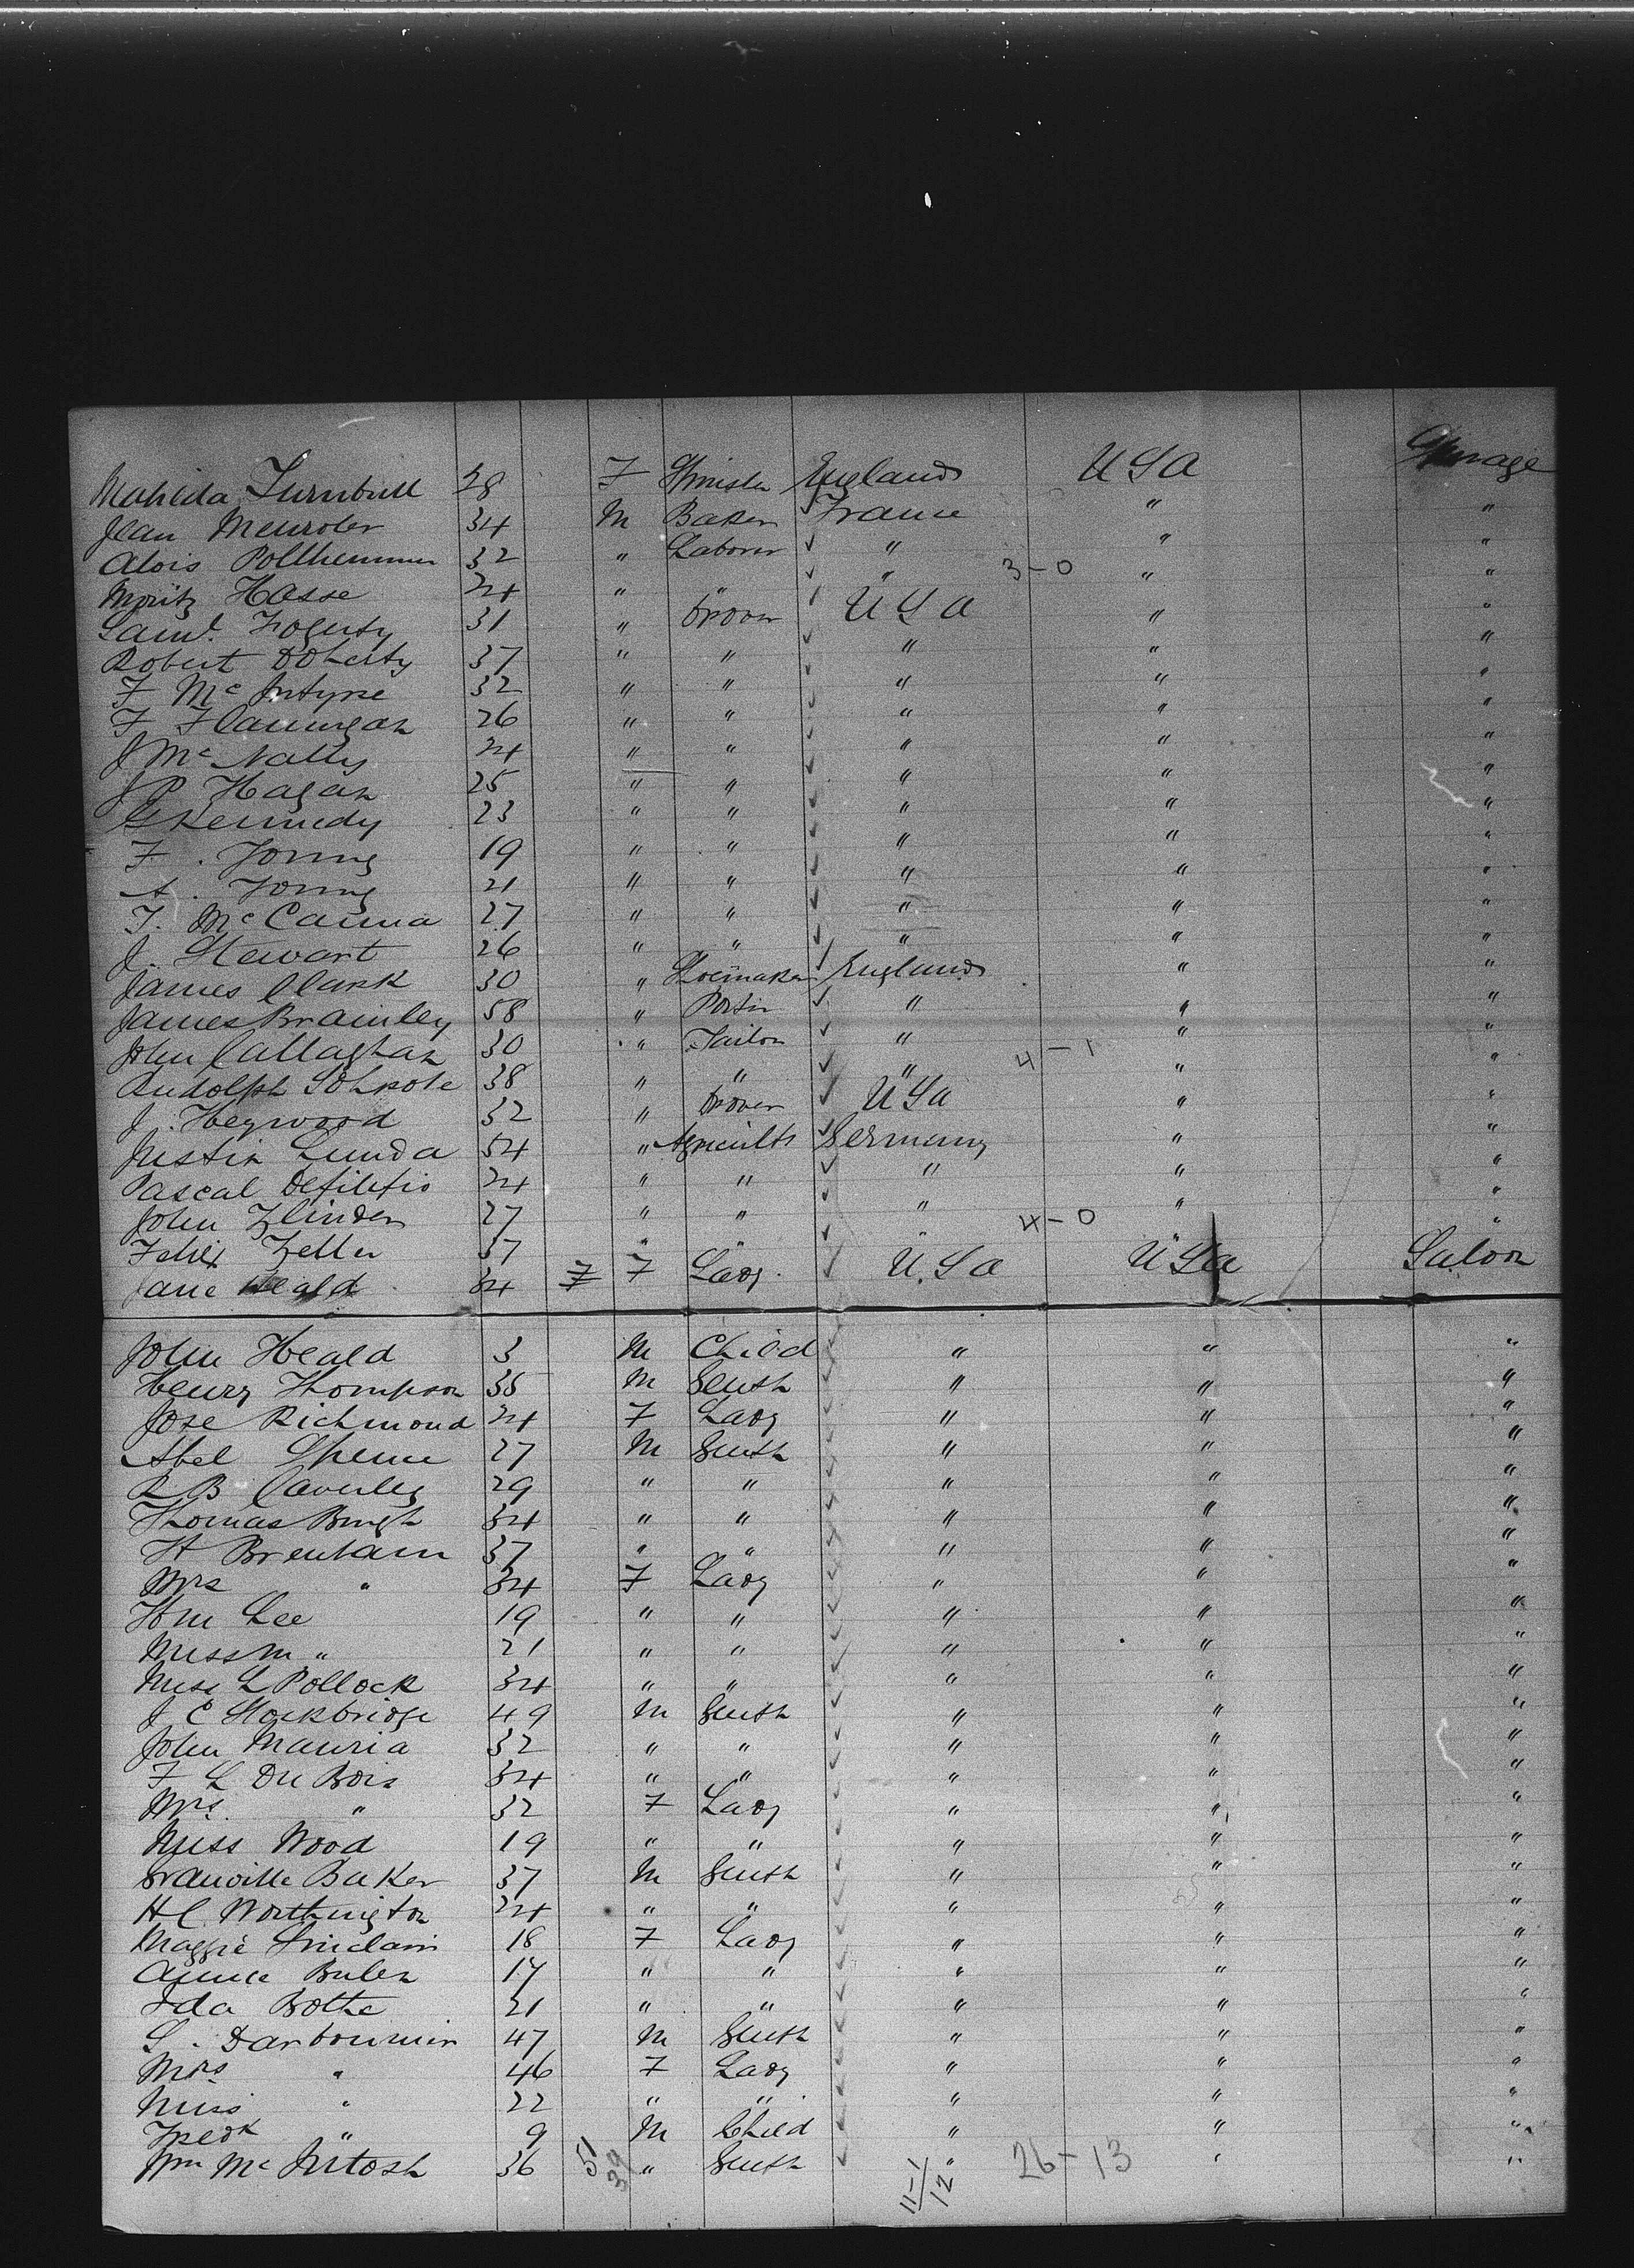 Matilda Turnbull 28 F Spinster England USA Steerage
Jean Meuroler 34 M Baker France " "
Alois Pollhemmer 32 " Laborer " " "
Moritz Hasse 24 " " " 3-0 " "
Saml. Fogerty 31 " Drover USA " "
Robert Doherty 37 " " " " "
F McIntyre 32 " " " " "
F Flannigan 26 " " " " "
J McNally 24 " " " " "
J P Hagan 25 " " " " "
G Kennedy 23 " " " " "
F. Young 19 " " " " "
A. Young 21 " " " " "
T. McCanna 27 " " " " "
J. Stewart 26 " " " " "
James Clark 30 " Shoemaker England " "
James Bramley 58 " Porter " " "
John Callaghan 30 " Tailor " " "
Rudolph 38 " " " 4-1 " "
J. Heywood 32 " Drover USA " "
Justin Lunda 54 " Agricults Germany " "
Pascal Defilipis 24 " " " " "
John Zlinden 27 " " " " "
Felix Zeller 37 " " " 4-0 " "
Jane Heald 34 F F Lady U.S.A USA Saloon
John Heald 3 M Child " " "
Henry Thompson 35 M Gentn " " "
Jose Richmond 24 F Lady " " "
Abel Spence 27 M Gentn " " "
R B Caverley 29 " " " " "
Thomas Bragh 34 " " " " "
H Brentam 37 " " " " "
Mrs " 34 F Lady " " "
Hm Lee 19 " " " " "
Miss M " 21 " " " " "
Miss L Pollock 34 " " " " "
J C Stockbridge 49 M Gentn " " "
John Mauria 32 " " " " "
F L Du Bois 34 " " " " "
Mrs. " 32 F Lady " " "
Miss Wood 19 " " " " "
Granville Baker 37 M Gentn " " "
H C. Worthington 24 " " " " "
Maggie Sinclair 18 F Lady " " "
Annie Bulen 17 " " " " "
Ida Bothe 21 " " " " "
S. Darboumin 47 M Gentn " " "
Mrs " 46 F Lady " " "
Miss " 22 " " " " "
Fredk " 9 M Child " " "
Wm McIntosh 36 " Gentn " 26-13 " "
51
39
11-1
12